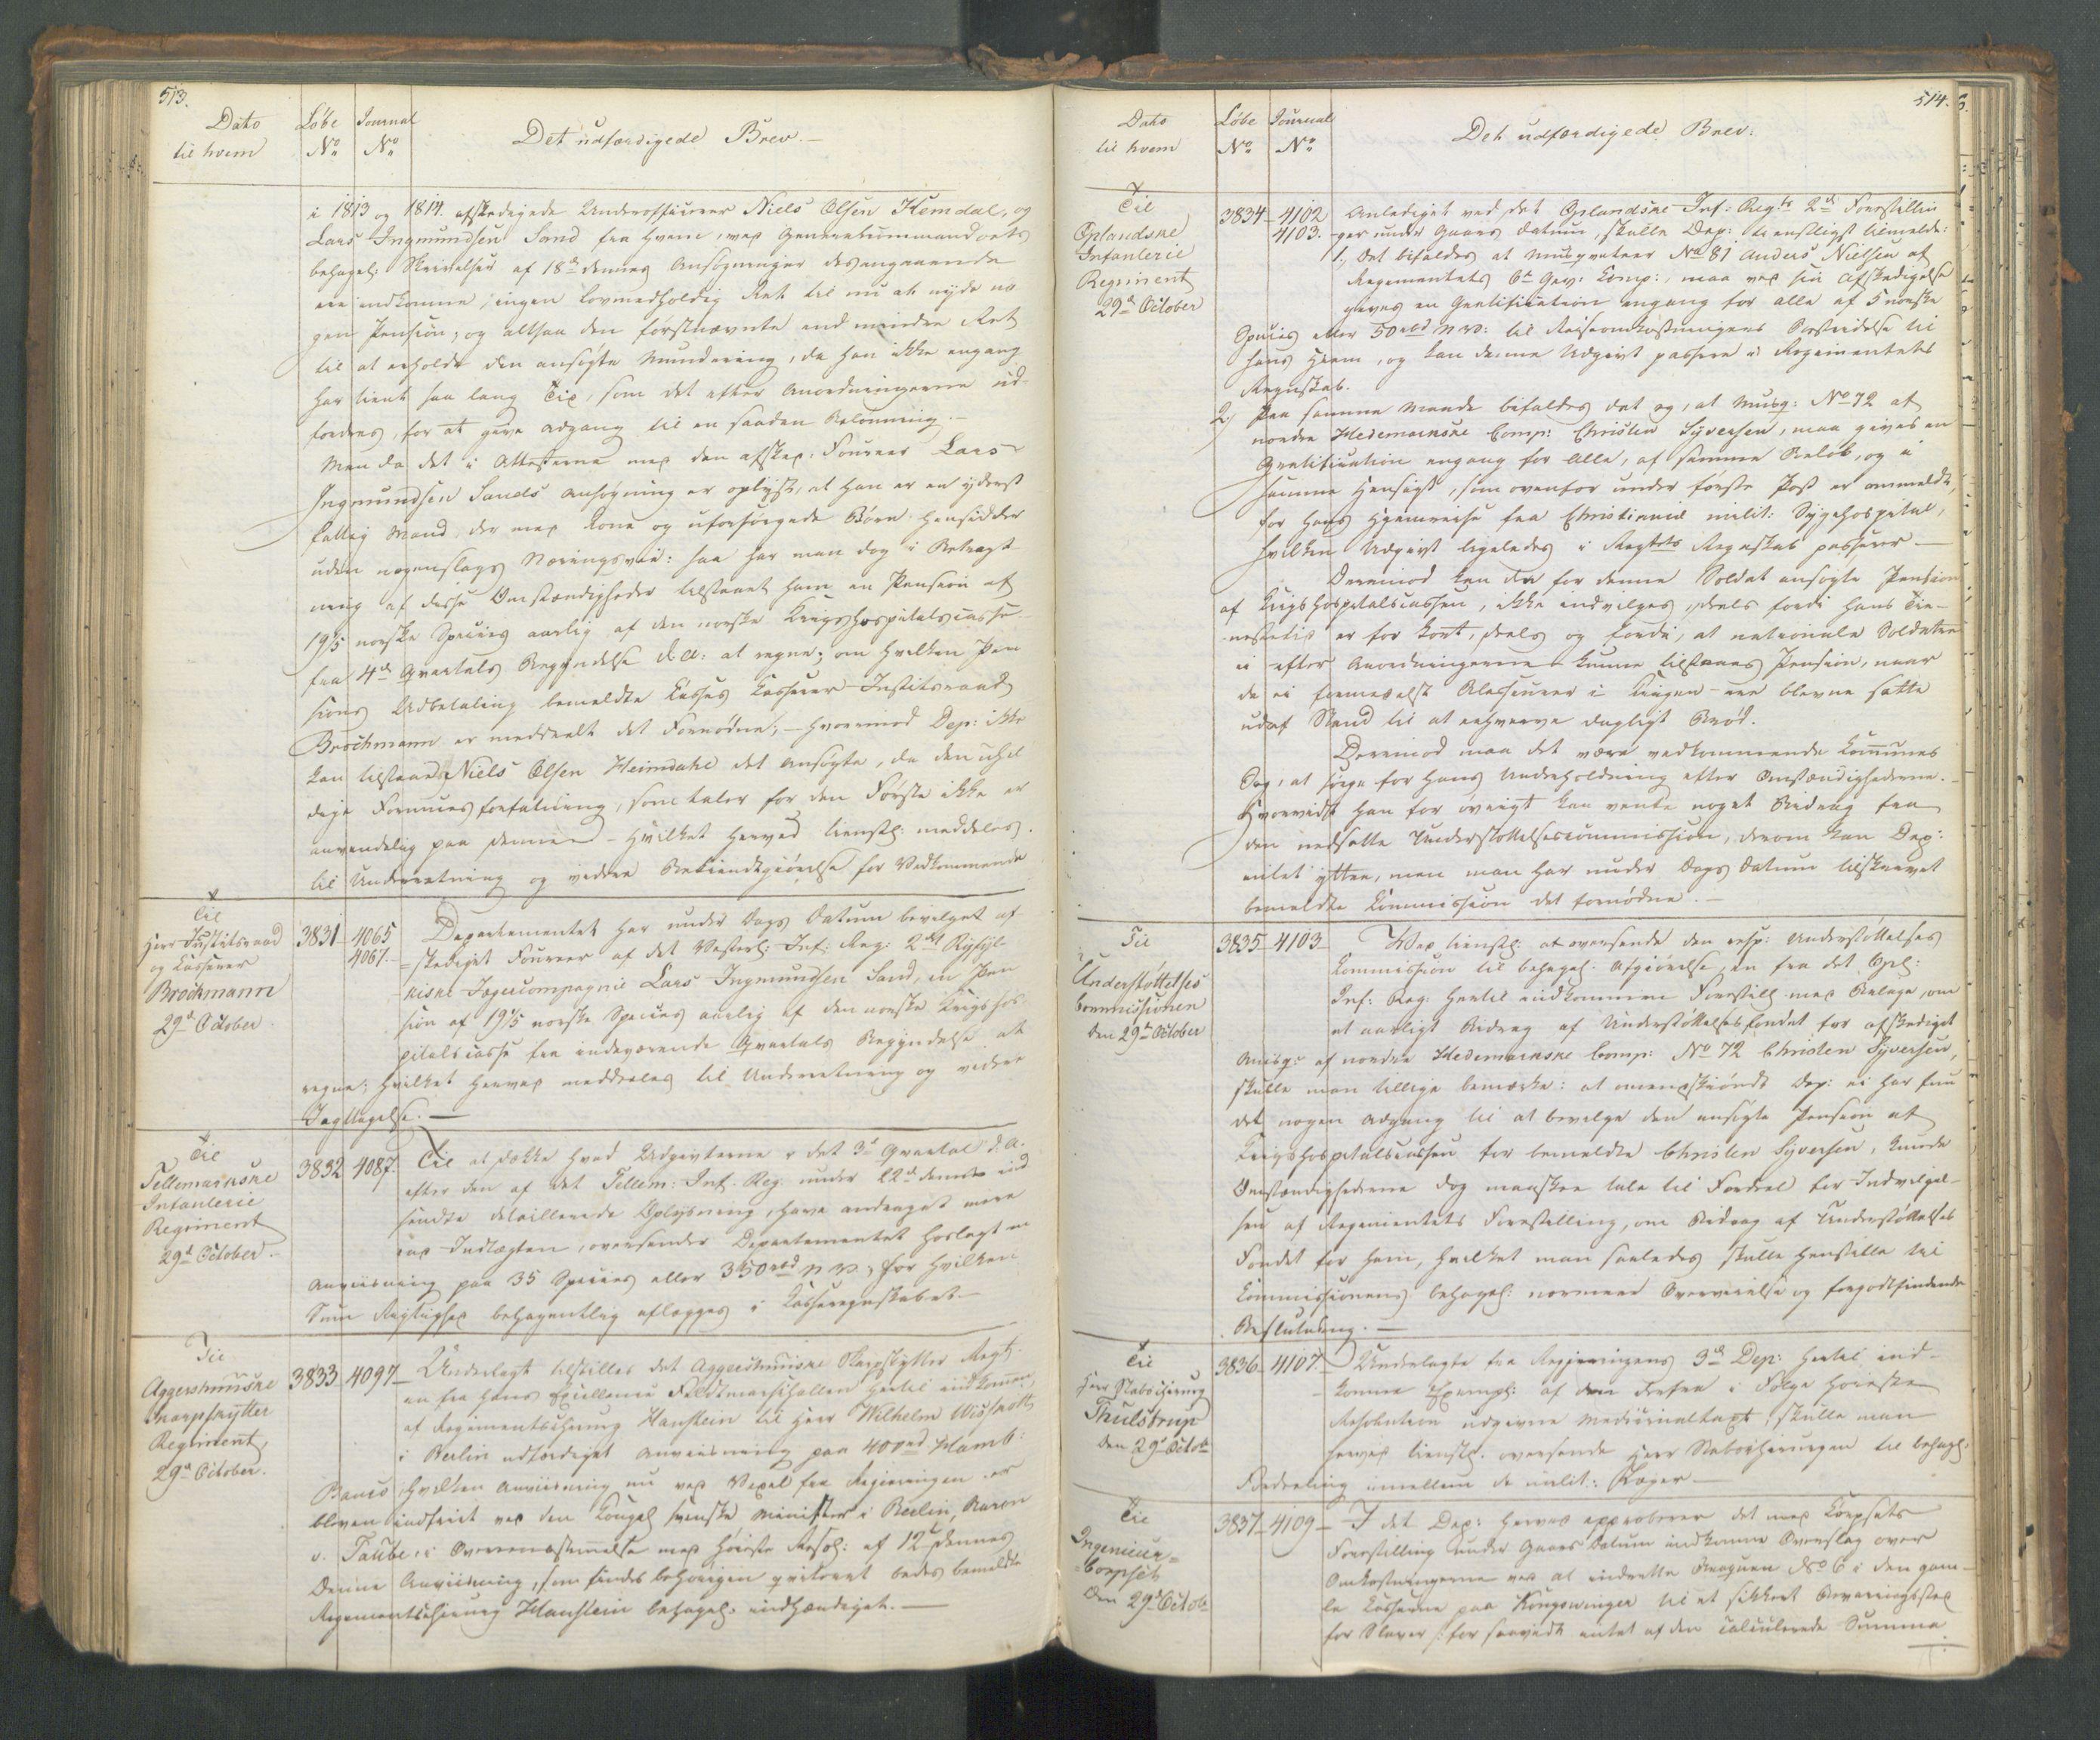 513.
Dato
til hvem
Løbe
No
Journal
No
Det udfærdigede Brev.
i 1813 og 1814. afskedigede Underofficerer Niels Olsen Hemdal, og
Lars Ingmundsen Sand fra hvem, ved Generalcommandoets
behagel: Skrivelser af 18de dennes Ansøgninger desangaaende
ere indkomne, ingen lovmedholdig Ret til nu at nyde no
gen Pension; og altsaa den førstnævnte end mindre Ret
til at erholde den ansøgte Mundering, da han ikke engang
har tient saa lang Tid, som det efter Anordningerne ud-
fordres, for at give Adgang til en saadan Belønning.
Men da det i Attesterne med den afsked: Foureer Lars
Ingmundsen Sands Ansøgning er oplyst, at han er en yderst
fattig Mand, der med Kone og uforsørgede Børn hensidder
uden nogenslags Næringsvei: saa har man dog i Betragt
ning af disse Omstændigheder tilstaaet ham en Pension af
19 1/5 norske Species aarlig af den norske Krigshospitalscasse
fra 4de Qvartals Begyndelse d. A. at regne; om hvilken Pen
sions Udbetaling bemeldte Casses Casserer Justitsraad
Brochmann er meddeelt det Fornødne; - hvorimod Dep: ikke
kan tilstaae Niels Olsen Heimdahl det Ansøgte, da den uhel
dige Formuesforfatning, som taler for den Første ikke er
anvendelig paa denne - Hvilket herved tienstl: meddeles
til Underretning og videre Bekiendtgiørelse for Vedkommende
Til
Herr Justitsraad
og Casserer
Brockmann
29de October
3831
4065
4067.
Departementet har under Dags Datum bevilget af
skediget Foureer af det Vesterl: Inf: Reg: 2det Ryfyl
kiske Jægercompagnie Lars Ingmundsen Sand, en Pen
sion af 19 1/5 norske Species aarlig af den norske Krigshos
pitalscasse fra indeværende Qvartals Begyndelse at
regne; hvilket herved meddeeles til Underretning og videre
Iagttagelse.
Til
Tellemarkske
Infanterie
Regiment
29de October
3832
4087.
Til at dække hvad Udgivterne i det 3de Qvartal d. A.
efter den af det Tellem: Inf. Reg: under 22de dennes ind
sendte detaillerede Oplysning, have andraget mere
end Indtægten, oversender Departementet hoslagt en
Anviisning paa 35 Species eller 350 rbd N. V. for hvilken
Sum Rigtighed behagentlig aflægges i Casseregnskabet
Til
Aggershuusiske
Skarpskytter
Regiment,
29de October.
3833
4097
Underlagt tilstilles det Aggershuusiske Skarpskytter Regt:
en fra Hans Excellence Feldtmarschallen hertil indkommen,
af Regimentschirurg Hanstein til Herr Wilhelm Wisshott
i Berlin udfærdiget Anviisning paa 400 Hamb:
Banco, hvilken Anviisning nu ved Vexel fra Regieringen er
bleven indfriet ved den Kongel svenske Minister i Berlin, Baron
v. Taube, i Overensstemmelse med Høieste Resol: af 12te dennes
Denne Anviisning, som findes behørigen qvitteret bedes bemeldte
Regimentschirurg Hanstein behagel: indhændiget.
514.
Dato
til hvem
Løbe
No
Journal
No
Det udfærdigede Brev:
Til
Oplandske
Infanterie
Regiment
29de October
3834
4102
4103.
Anlediget ved det Oplandske Inf: Regts 2de Forestillin
ger under Gaars Datum, skulle Dep: tienstligst tilmelde:
1, det bifaldes at Musqveteer No 81 Anders Nielsen af
Regimentets 6te Gev: Comp:, maa ved sin Afskedigelse
gives en Gratification engang for alle af 5 norske
Species eller 50 rbd N. V: til Reiseomkostningens Bestridelse til
hans Hiem, og kan denne Udgivt passere i Regimentets
Regnskab.
2) Paa samme Maade bifaldes det og, at Musq: No 72 af
nordre Hedemarkske Comp: Christen Syversen, maa gives en
Gratification engang for Alle, af samme Beløb, og i
samme Hensigt, som ovenfor under første Post er anmeldt,
for hans Hjemreise fra Christiania milit: Sygehospital,
hvilken Udgivt ligeledes i Regtets Regnskab passerer
Derimod kan den for denne Soldat ansøgte Pension
af Krigshospitalscassen, ikke indvilges, deels fordi hans Tie-
nestetid er for kort, deels og fordi, at nationale Soldater
ei efter Anordningerne kunne tilstaaes Pension, naar
de ei formedelst Blessurer i Krigen ere blevne satte
udaf Stand til at erhverve dagligt Brød.
Derimod maa det være vedkommende Communes
Sag, at sørge for hans Underholdning efter Omstændighederne.
Hvorvidt han for øvrigt kan vente noget Bidrag fra
den nedsatte Understøttelsescommission, derom kan Dep:
intet yttre, men man har under Dags Datum tilskrevet
bemeldte Commission det fornødne.
Til
Understøttelses
Commissionen
den 29de October
3835
4103
Ved tienstl: at oversende den resp: Understøttelses
Commission til behagel. Afgiørelse, en fra det Opl:
Inf: Reg: hertil indkommen Forestill: med Bilage, om
et aarligt Bidrag af Understøttelsesfondet for afskediget
Musq: af nordre Hedemarkske Comp: No 72 Christen Syversen,
skulle man tillige bemærke: at omendskiøndt Dep: ei har fun
det nogen Adgang til at bevilge den ansøgte Pension af
Krigshospitalscassen for bemeldte Christen Syversen, kunde
Omstændighederne dog maaskee tale til Fordeel for Indvilgel-
sen af Regimentets Forestilling, om Bidrag af Understøttelses
Fondet for ham, hvilket man saaledes skulle henstille til
Commissionens behagel: nærmere Overveielse og forgodtfindende
Beslutning.
Til
Herr Stabschirurg
Thulstrup
den 29de Octob
3836
4107.
Underlagte fra Regjeringens 3de Dep: hertil ind-
komne Exempl: af den derfra i Følge Høieste
Resolution udgivne Medicinaltaxt, skulle man
herved tienstl: oversende Herr Stabschirurgen til behagl:
Fordeeling imellem de milit: Læger
Til
Ingenieur-
Corpset
den 29de Octob
3837
4109
I det Dep: herved approberer det med Corpsets
Forestilling under Gaars Datum indkomne Overslag over
Omkostningerne ved at indrette No 6 i den gam-
le Casserne paa Kongsvinger til et sikkert Bevaringssted
for Slaver, for saavidt intet af den calculerede Summa